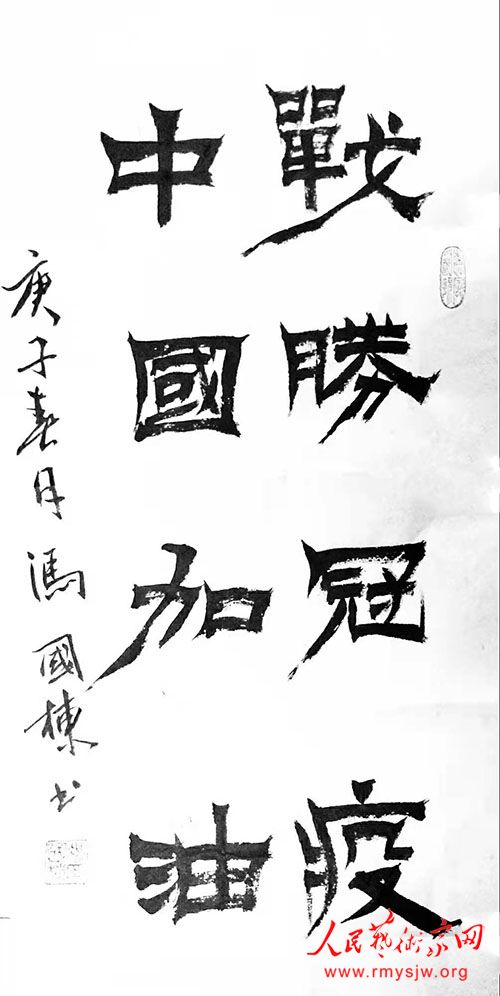 戰勝冠疫
中國加油
庚子春月馮國棟书
人民艺術家网
www.rmysjw.org